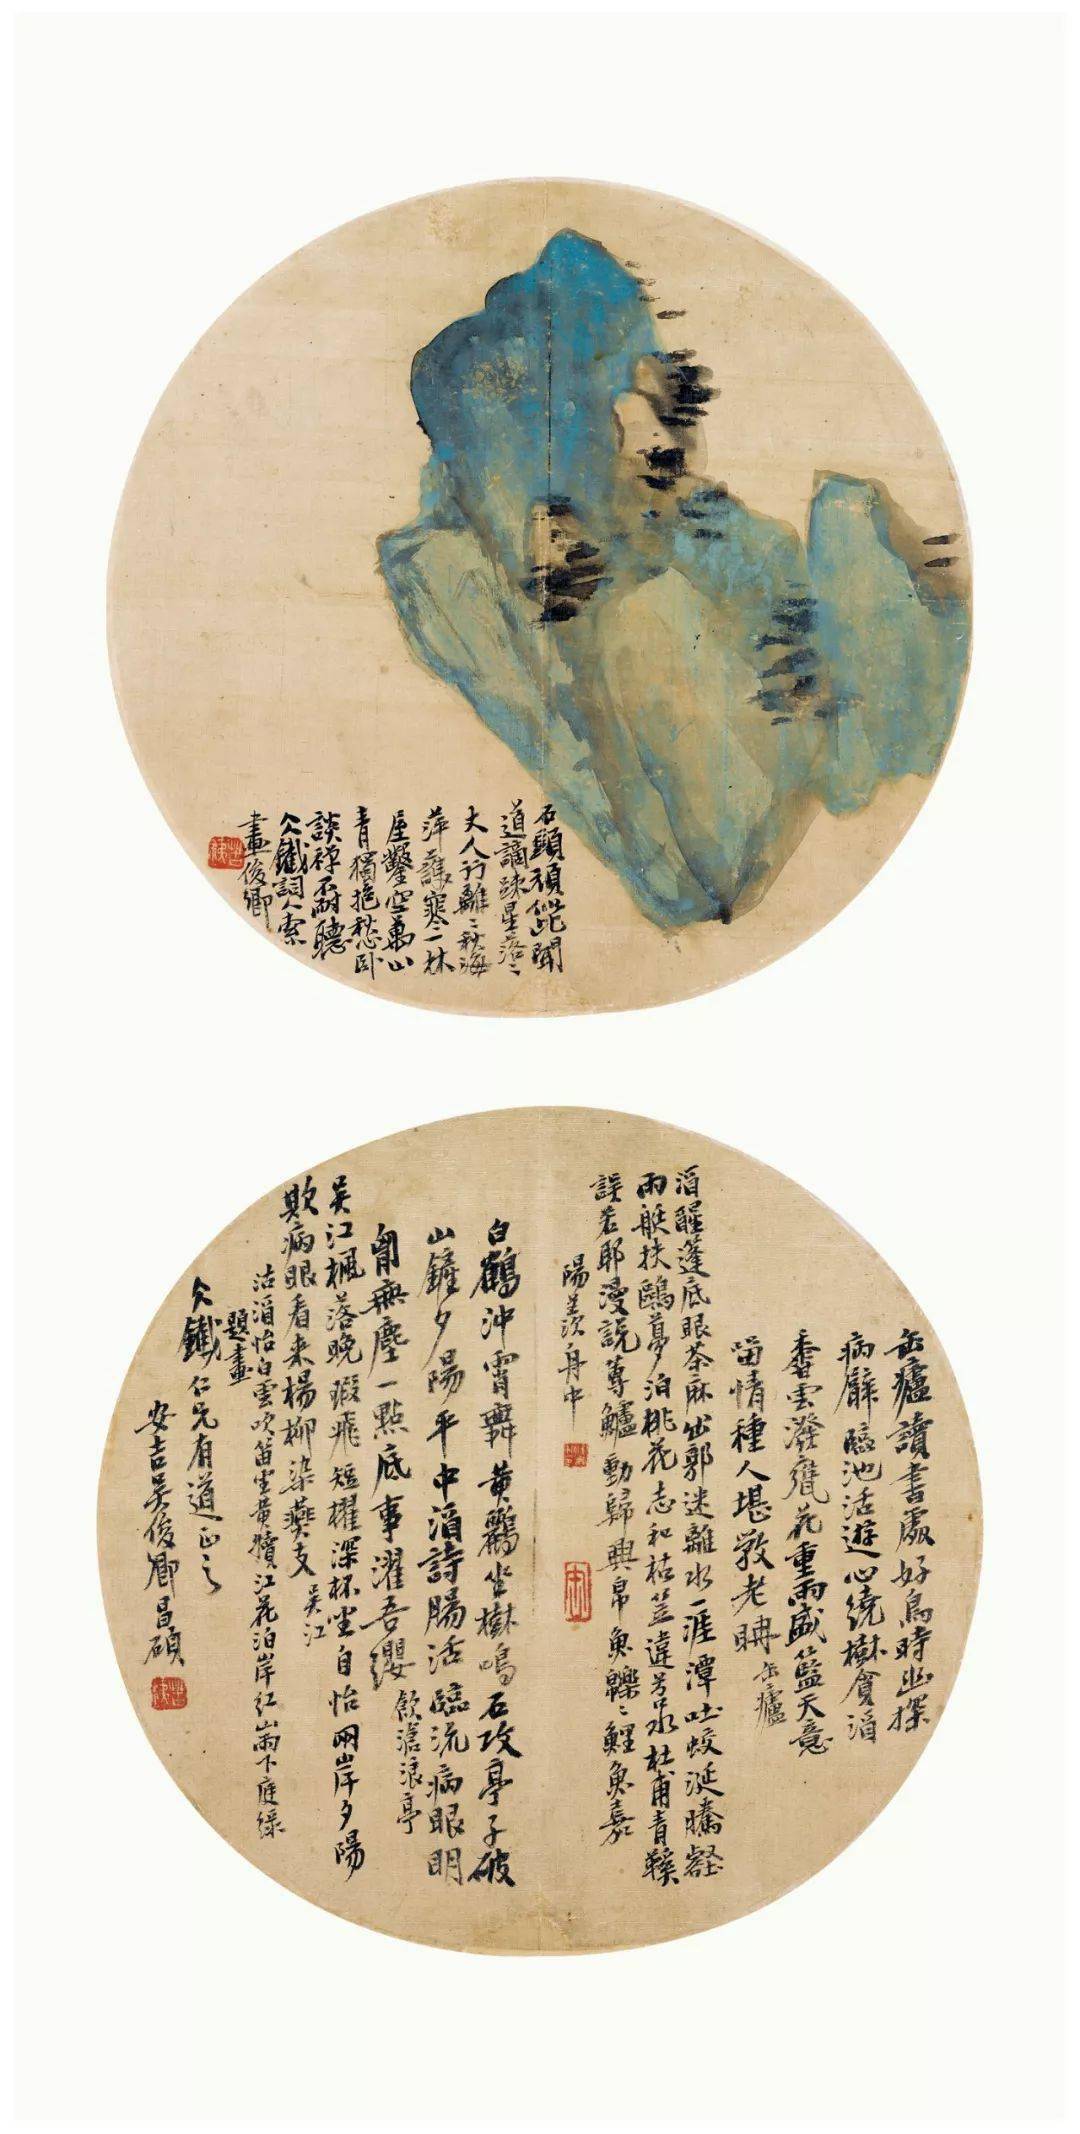 石頭頑能聞
道謫疎星落々
丈人行離々秋海
萍護寒一林
屋鑿空萬山
青獨抱愁卧
談禪不耐聽
仌鐵詞人索
畫俊卿
缶廬讀書處好鳥時幽探
病臂臨池活遊心繞樹貪酒
香雲潑甕花重雨盛籃天意
留情種人堪敎老聃 缶廬
酒醒蓬底眼茶麻出郭迷離水一涯潭吐蛟涎騰壑
雨艇扶鷗夢泊桃花志和枯笠違苕水杜甫青鞵
誤若耶漫說蓴鱸動歸興帛魚鱳々鯉魚嘉
陽羨舟中
白鶴沖霄舞黃鸝坐樹鳴石攻亭子破
山鏟夕陽平中酒詩腸活臨流病眼明
胷無塵一點底事濯吾纓 飲滄浪亭
吳江楓落晚鴉飛短櫂深杯坐自怡兩岸夕陽
欺病眼看來楊柳染燕支 吳江
沽酒怡白雲吹笛坐黃犢江花泊岸紅山雨下庭綠
題畫
仌鐵仁兄有道正之
安吉吳俊卿昌碩